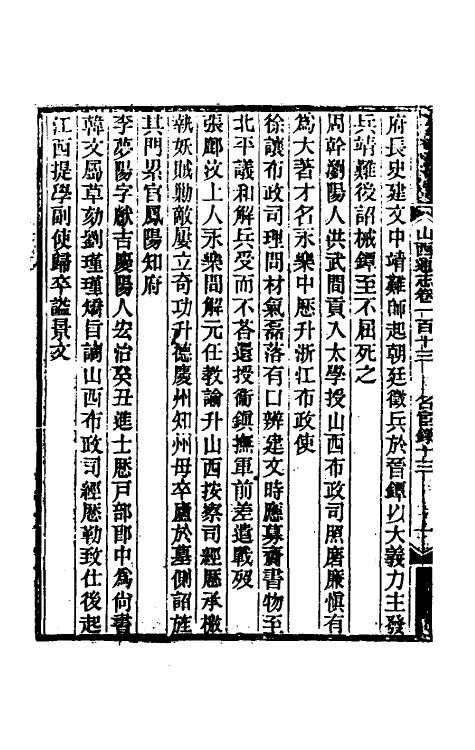 府長史建文中靖難師起朝廷徵兵於晉鐔以大義力主發
兵靖難後詔械鐔至不屈死之
周幹瀏陽人洪武間貢入太學授山西布政司照磨廉慎有
爲大著才名永樂中歷升浙江布政使
徐讓布政司理問材氣磊落有口辨建文時應募齎書物至
北平議和解兵受而不荅還授衞鎭撫軍前差遣戰歿
張郎汶上人永樂間解元任教諭升山西按察司經歷承檄
執妖賊勦敵屢立奇功升德慶州知州母卒廬於墓側詔旌
其門累官鳳陽知府
李夢陽字獻吉慶陽人宏治癸丑進士歷戸部郎中爲尙書
韓文屬草劾劉瑾瑾矯旨謫山西布政司經歷勒致仕後起
江西提學副使歸卒謚景文
山西通志卷一百十三 名宦錄十三